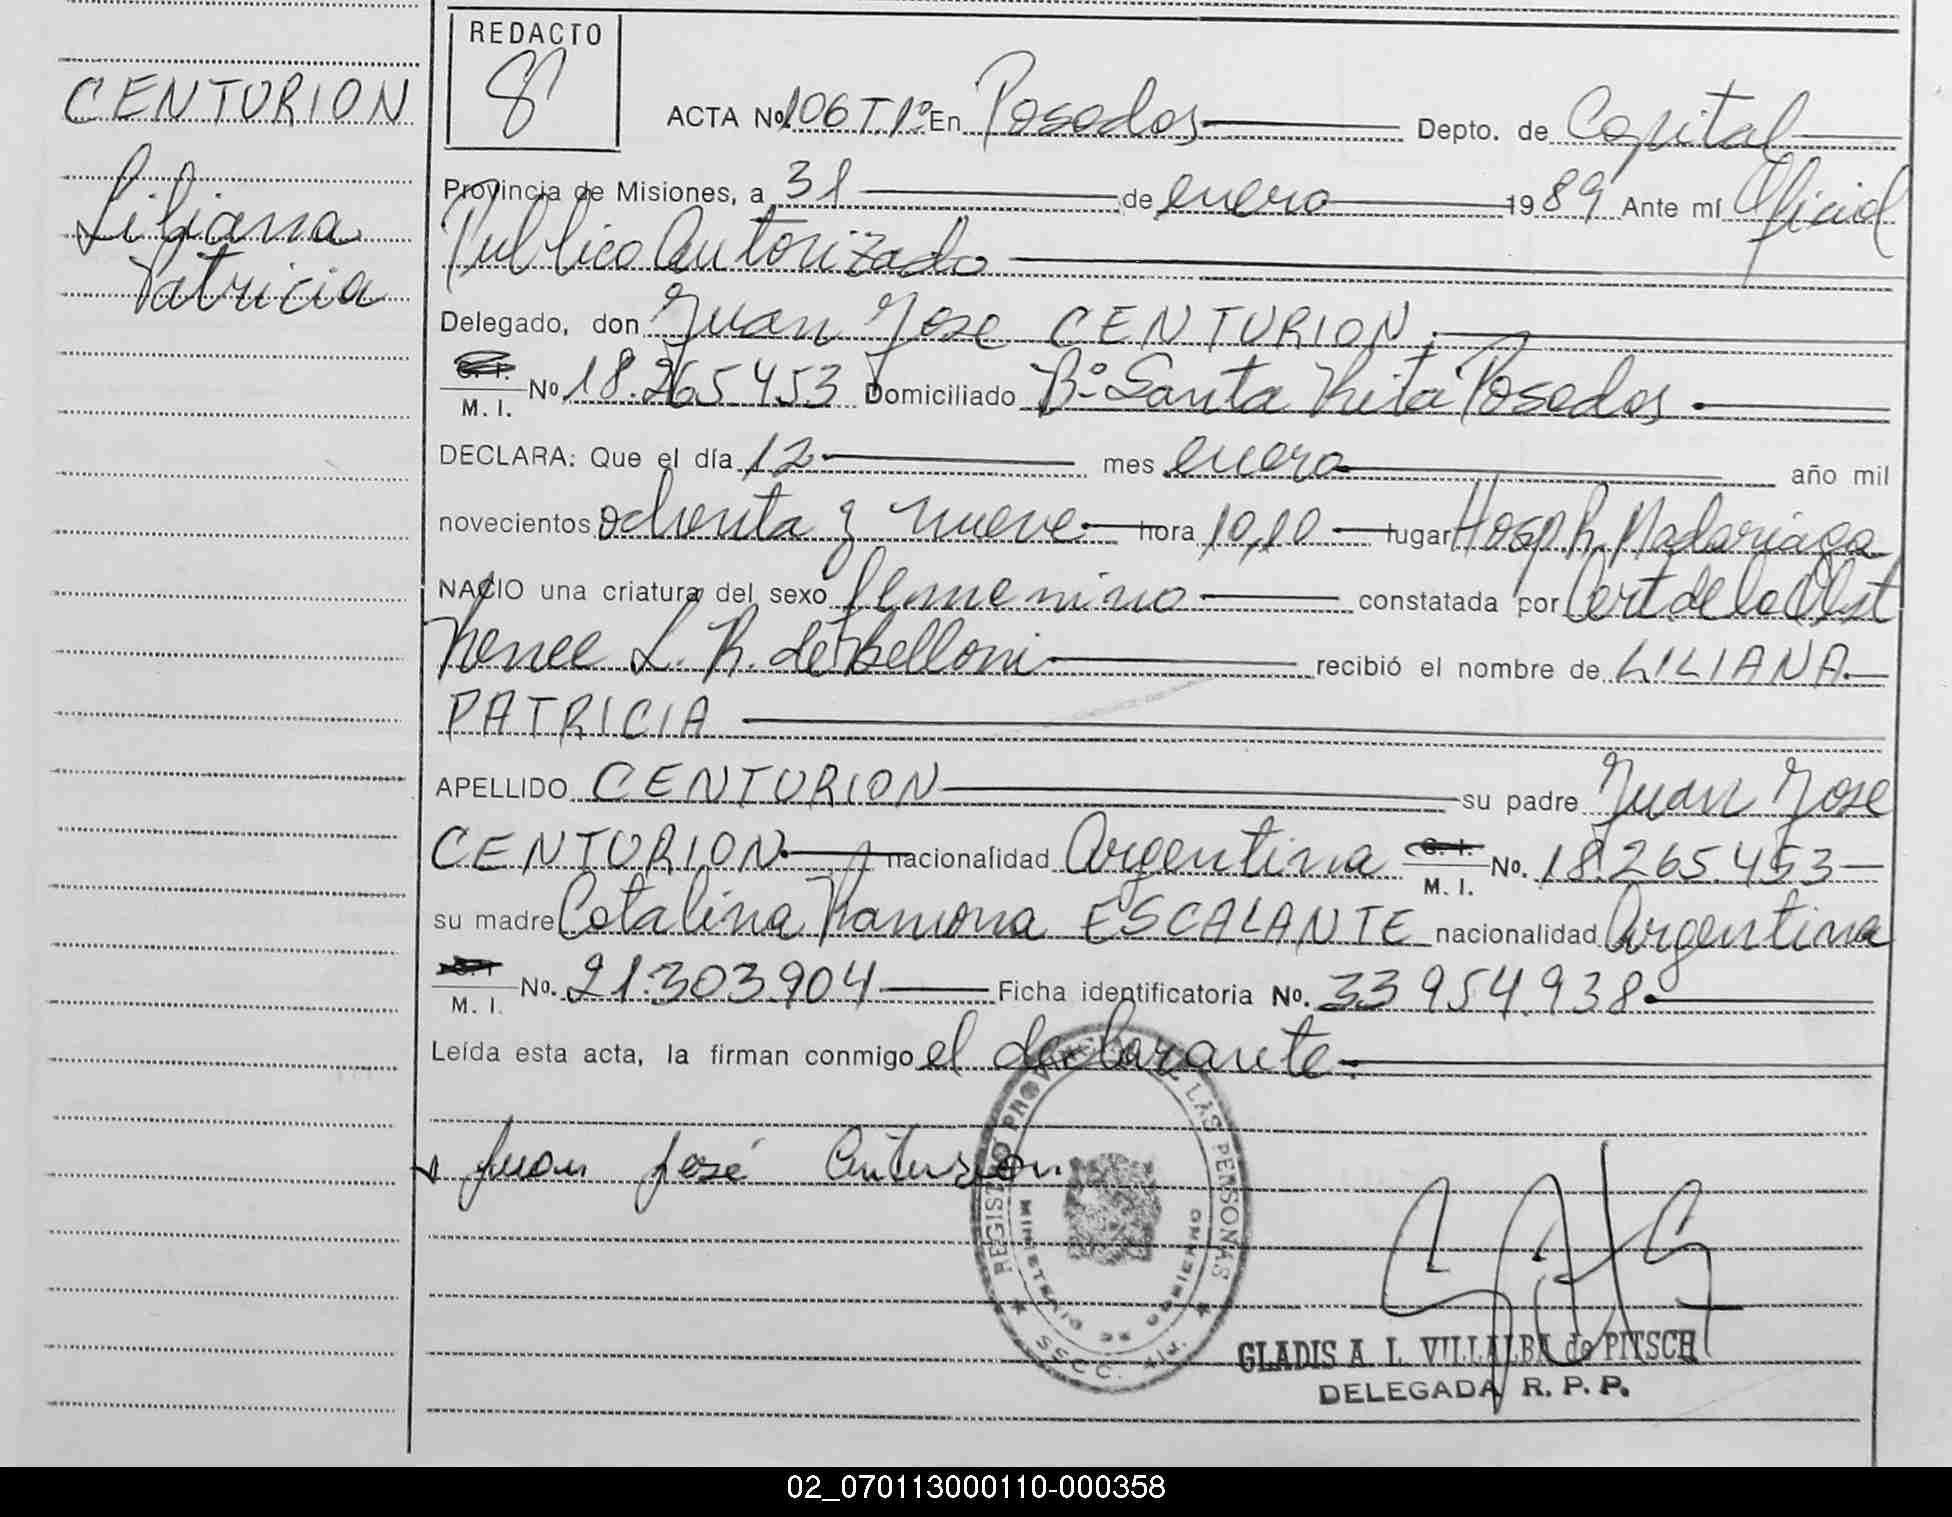 CENTURION
Liliana
Patricia
REDACTO
ACTA Nº 106 T.1º En Posadas Depto. de Capital
Provincia de Misiones, a 31 de enero 1989 Ante mí Oficial
Publico Autorizado
Delegado, don Juan Jose CENTURION
M. I. Nº 18.265.453 Domiciliado Bº Santa Rita Posadas
DECLARA: Que el día 12 mes enero año mil
novecientos ochenta y nueve hora 10,10 lugar Hosp. R. Madariaga
NACIO una criatura del sexo femenino constatada por Cert. de la Obst
Renee L. R. de Belloni recibió el nombre de LILIANA
PATRICIA
APELLIDO CENTURION su padre Juan Jose
CENTURION nacionalidad Argentina C. I. M. I. No. 18.265.453
su madre Catalina Ramona ESCALANTE nacionalidad Argentina
M. I. No. 21.303.904 Ficha identificatoria No. 33.954.938
Leída esta acta, la firman conmigo el declarante.
Juan José Centurion
REGISTRO PROVINCIAL DE LAS PERSONAS
MINISTERIO DE GOBIERNO
SS.CC.
GLADIS A. L. VILLALBA de PITSCH
DELEGADA R. P. P.
02_070113000110-000358